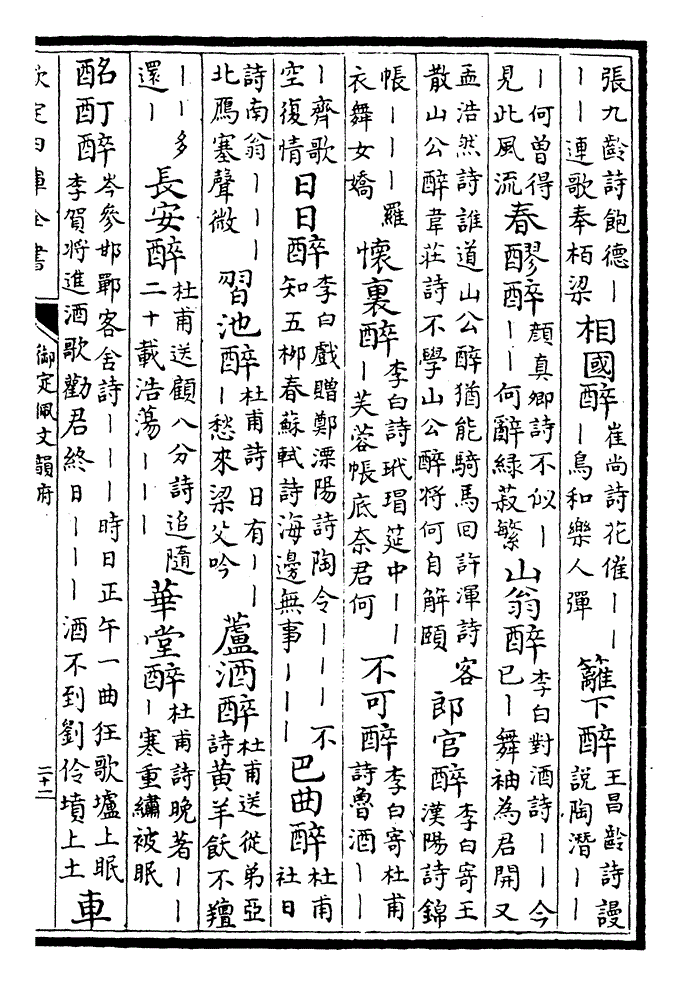 張九齡詩飽德｜｜｜連歌奉栢梁相國醉崔尚詩花催｜｜｜鳥和樂人彈籬下醉王昌齡詩謾說陶潛｜｜
｜何曾得見此風流春醪醉顏真卿詩不似｜｜｜何辭緑菽繁山翁醉李白對酒詩｜｜今已｜舞袖為君開又
孟浩然詩誰道山公醉猶能騎馬回許渾詩客散山公醉韋莊詩不學山公醉將何自解頤郎官醉李白寄王漢陽詩錦
帳｜｜｜羅衣舞女嬌懷裏醉李白詩玳瑁筵中｜｜｜芙蓉帳底奈君何不可醉李白寄杜甫詩魯酒｜｜
｜齊歌空復情日日醉李白戲贈鄭溧陽詩陶令｜｜｜不知五栁春蘇軾詩海邊無事｜｜｜巴曲醉杜甫社日
詩南翁｜｜｜北鴈塞聲微習池醉杜甫詩日有｜｜｜愁來梁父吟蘆酒醉杜甫送從弟亞詩黄羊飫不羶
｜｜多還｜長安醉杜甫送顧八分詩追隨二十載浩蕩｜｜｜華堂醉杜甫詩晚著｜｜｜寒重繡被眠
酩酊醉岑參邯鄲客舍詩｜｜｜時日正午一曲狂歌壚上眠李賀將進酒歌勸君終日｜｜｜酒不到劉伶墳上土車
欽定四庫全書
御定佩文韻府
二十二